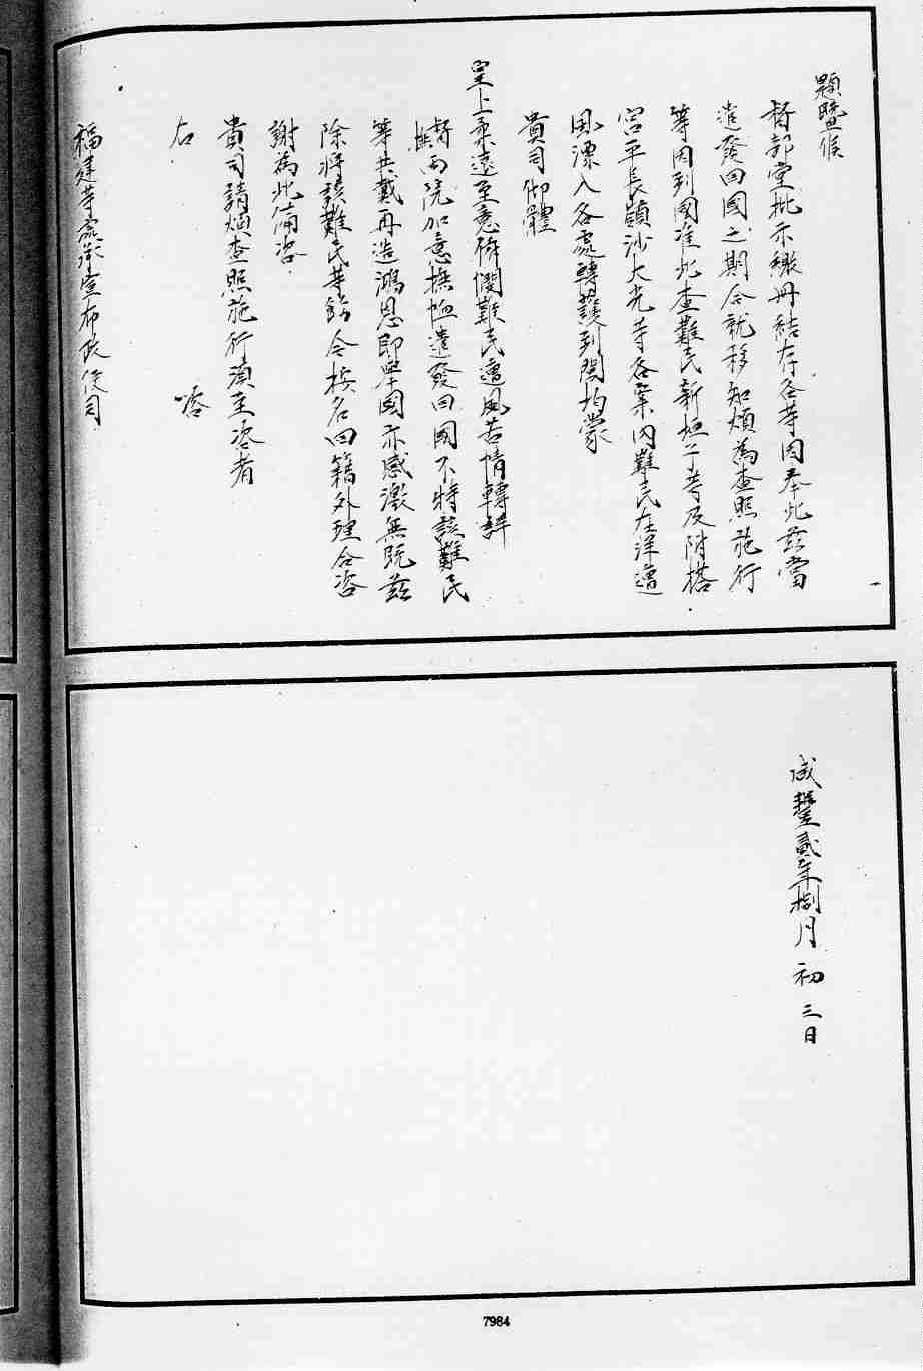 題暨候
督部堂批示繳冊結存各等因奉此茲當
遣發回國之期合就移知煩為查照施行
等因到國准此查難民新垣子等及附搭
宮平長嶺沙大光等各案內難民在洋遭
風漂入各處轉護到閩均蒙
貴司仰體
皇上柔遠至意俯憫難民遭風苦情轉詳
督撫兩院加意撫恤遣發回國不特該難民
等共戴再造鴻恩即舉國亦感激無既茲
除將該難民等飭令按名回籍外理合咨
謝為此備咨
貴司請煩查照施行須至咨者
右　咨
福建等處承宣布政使司
咸豐貳年捌月初三日
7984